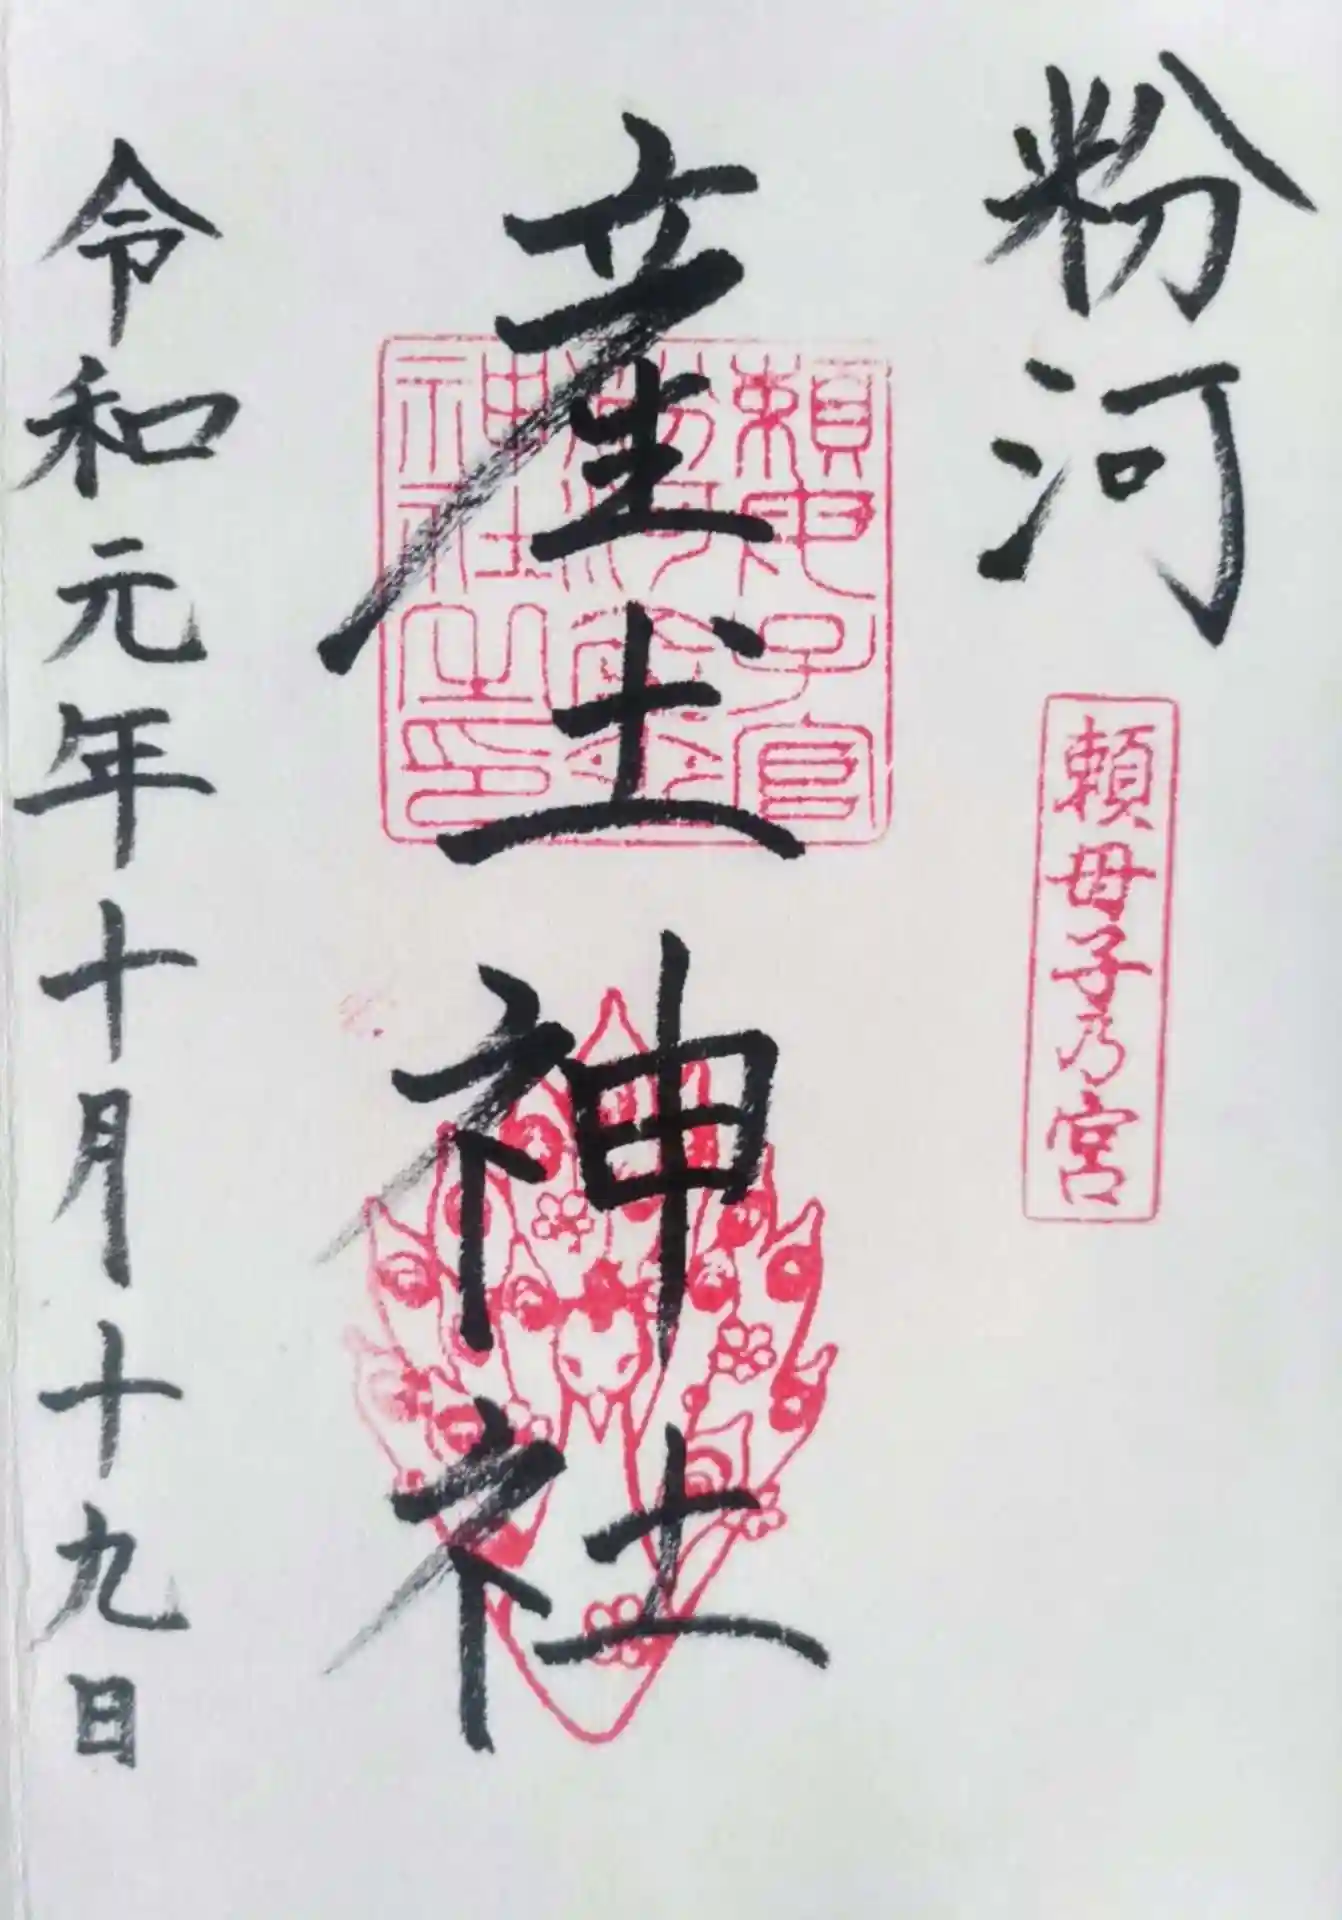 粉河
頼母子乃宮
産土神社
頼母子宮
粉河産土
神社之印
令和元年十月十九日